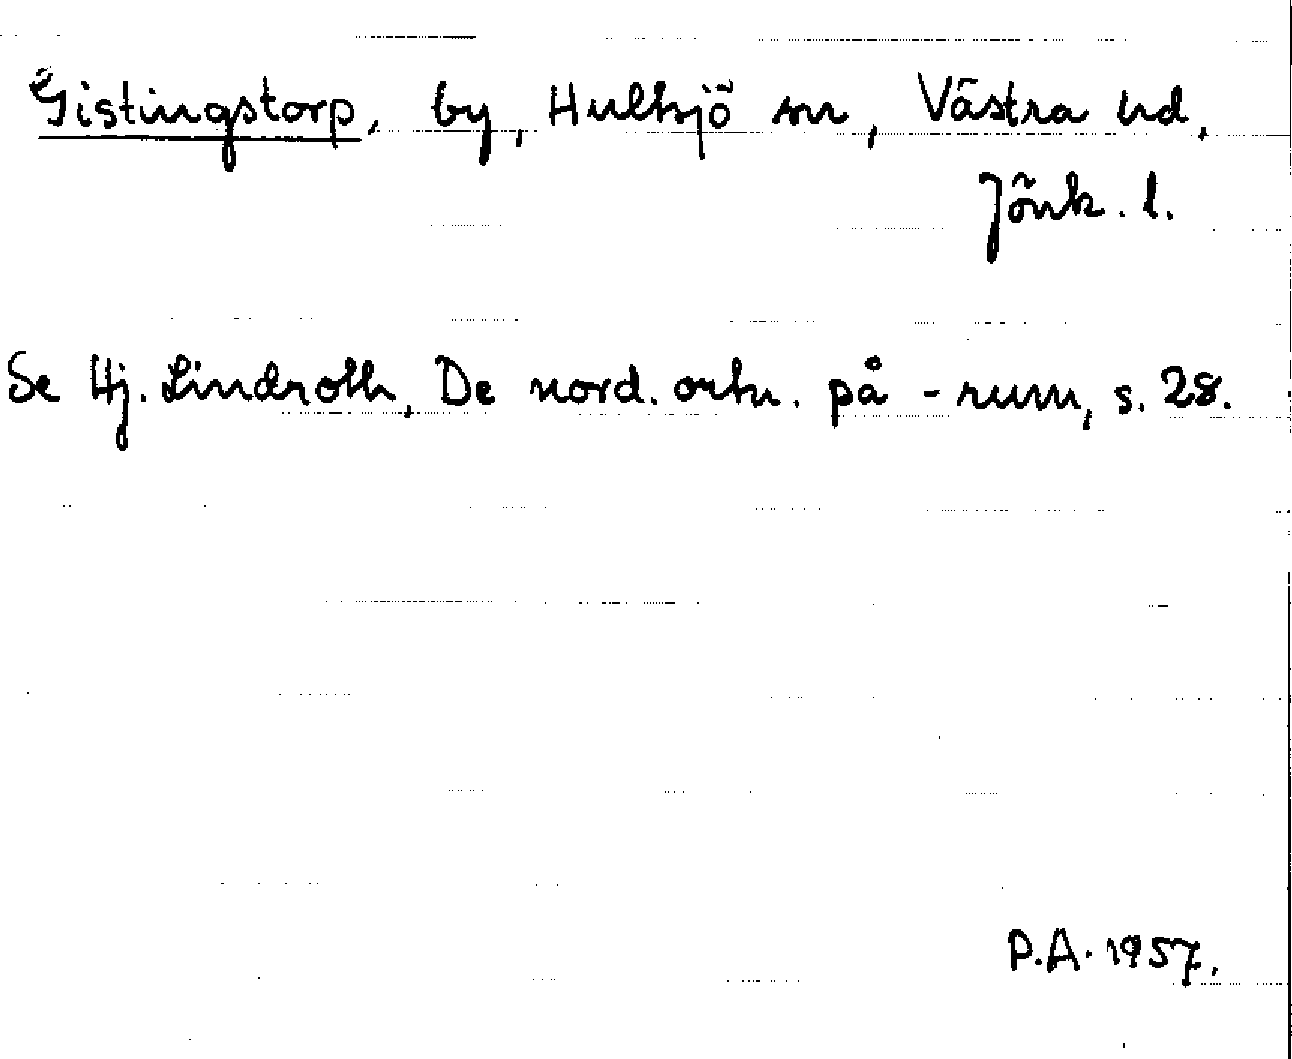 Gistingstorp, by, Hultsjö sn, Västra hd,
Jönk. l.
Se Hj. Lindroth, De nord. ortn. på -rum, s. 28.
P.A. 1957.